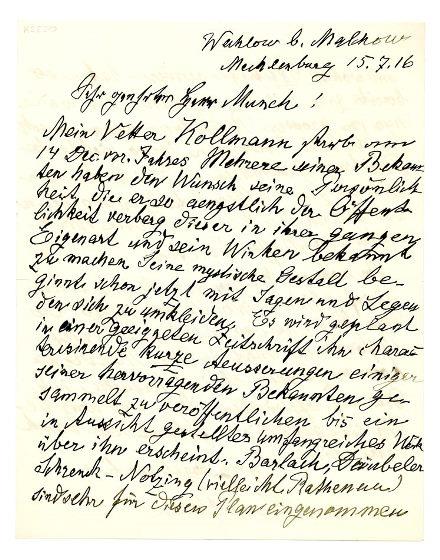 Wahlow b. Malchow
Mecklenburg 15.7.16
Sehr geehrter Herr Munch!
Mein Vetter Kollmann starb am
14 Dec. vor. Jahres Mehrere seiner Bekann
ten haben den Wunsch seine Persönlich
keit die er so aengstlich der Öffent
lichkeit verberg dieser in ihrer ganzen
Eigenart und sein Wirken bekannt
zu machen Seine mystische Gestalt be-
ginnt schon jetzt mit Sagen und Legen
den sich zu umkleiden. Es wird geplant
in einer geeigneten Zeitschrift ihn charac
terisirende kurze Aeusserungen einiger
seiner hervorragenden Bekannten ge-
sammelt zu veröffentlichen bis ein
in Aussicht gestelltes umfangreiches Werk
über ihn erscheint. Barlach, Däubeler
Schrenck-Notzing (vielleicht Rathenau)
sind sehr für diesen Plan eingenommen